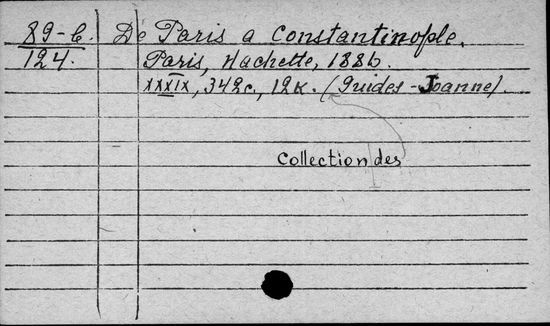 89-б. De Paris a Constantinople.
124. Paris, Hachette, 1886.
XXXIX, 342c., 12к. (Guides-Joanne).
Collection des